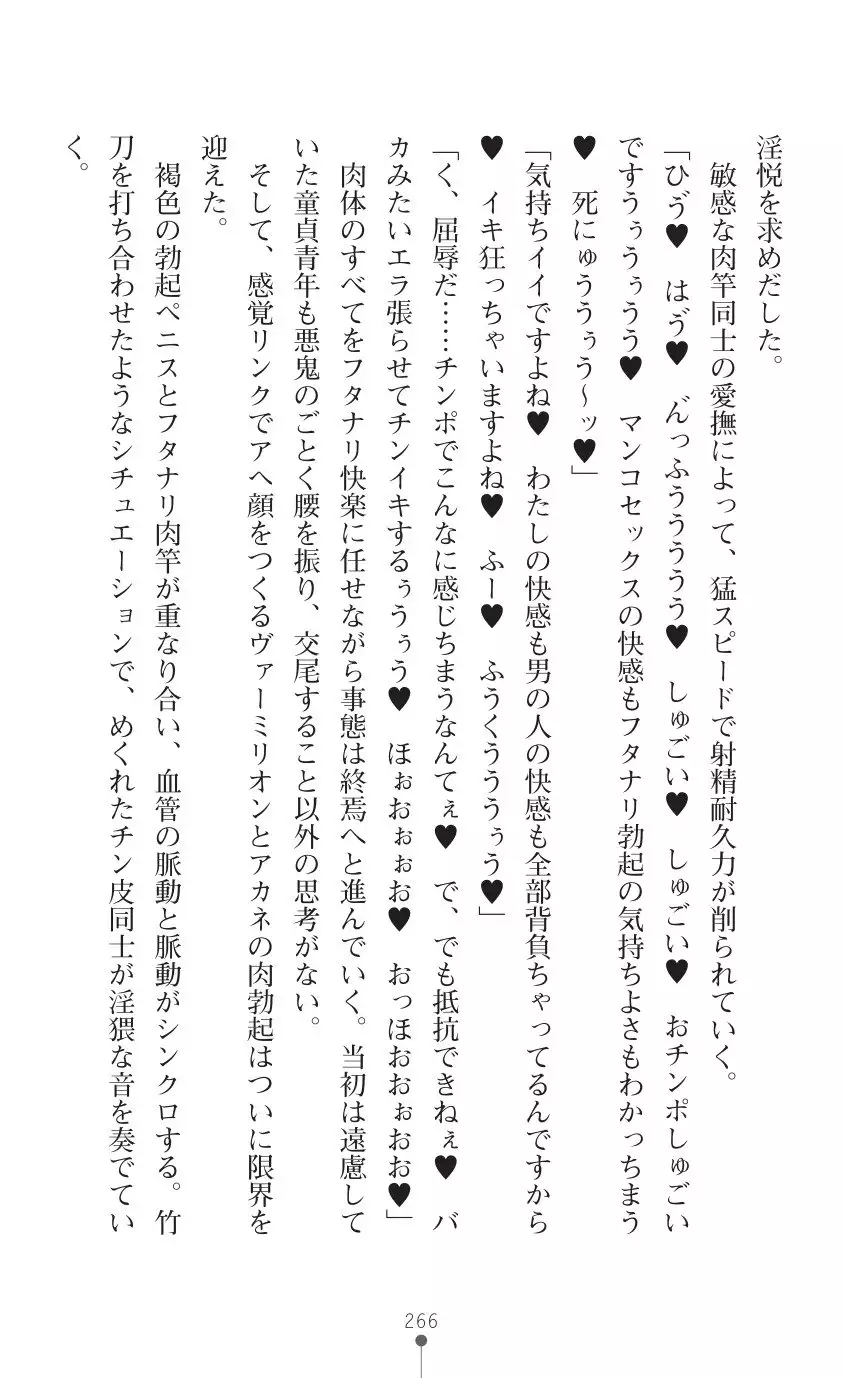 淫悦を求めだした。
敏感な肉竿同士の愛撫によって、猛スピードで射精耐久力が削られていく。
「ひゔ♥　はゔ♥　ん゙っふうううう♥　しゅごい♥　しゅごい♥　おチンポしゅごい
ですうぅうぅうう♥　マンコセックスの快感もフタナリ勃起の気持ちよさもわかっちまう
♥　死にゅううぅう～ッ♥」
「気持ちイイですよね♥　わたしの快感も男の人の快感も全部背負ちゃってるんですから
♥　イキ狂っちゃいますよね♥　ふー♥　ふうくうううぅう♥」
「く、屈辱だ……チンポでこんなに感じちまうなんてぇ♥　で、でも抵抗できねぇ♥　バ
カみたいエラ張らせてチンイキするぅうぅう♥　ほぉおぉぉお♥　おっほおおぉおお♥」
肉体のすべてをフタナリ快楽に任せながら事態は終焉へと進んでいく。当初は遠慮して
いた童貞青年も悪鬼のごとく腰を振り、交尾すること以外の思考がない。
そして、感覚リンクでアヘ顔をつくるヴァーミリオンとアカネの肉勃起はついに限界を
迎えた。
褐色の勃起ペニスとフタナリ肉竿が重なり合い、血管の脈動と脈動がシンクロする。竹
刀を打ち合わせたようなシチュエーションで、めくれたチン皮同士が淫猥な音を奏でてい
く。
266